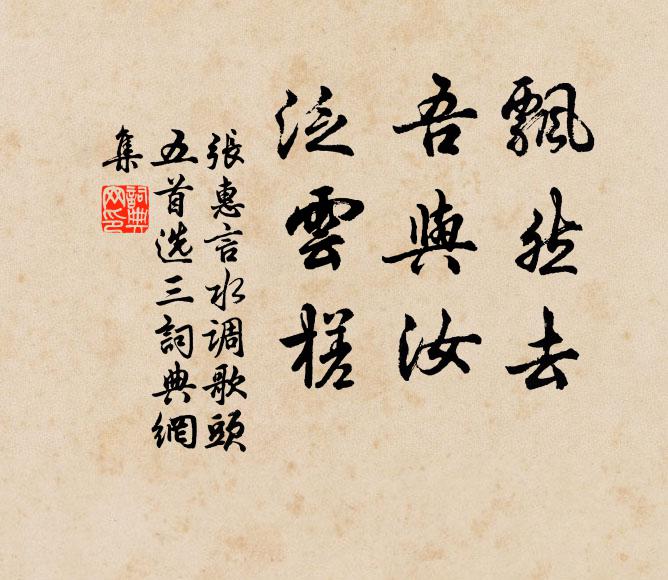 飄然去
吾與汝
泛雲槎
張惠言水调歌頭
五首选三詞典網
集
詞典網印